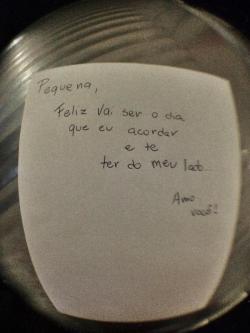 Pequena,
Feliz vai ser o dia
que eu acordar
e te
ter do meu lado
Amo
você!!